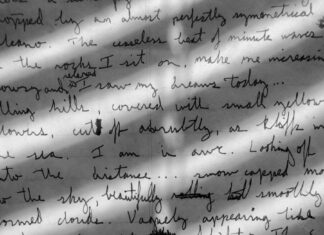 topped by an almost perfectly symmetrical
The ceaseless beat of minute waves
the rocks I sit on, make me increasin
relaxed
and, I saw my dreams today...
lling hills, covered with small yellow
lowers, cut off absurbtly, as kliffs in
he sea. I am in awe. Looking off
nto the distance... snow capped mo
to the sky, beautifully smoothly
ormed clouds. Vaguely appearing like